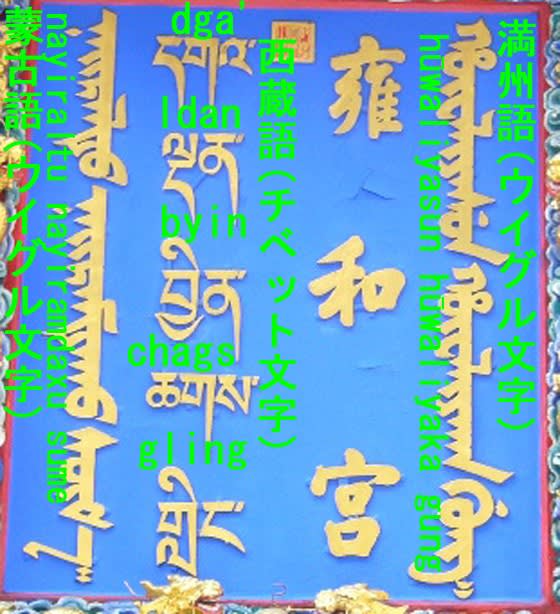 満州語(ウイグル文字)
ᡥᡡᠸᠠᠯᡳᠶᠠᠰᡠᠨ ᡥᡡᠸᠠᠯᡳᠶᠠᡴᠠ ᡤᡠᠩ
hūwaliyasun hūwaliyaka gung
雍和宮
西蔵語(チベット文字)
dga'
དགའ
ldan
ལྡན
byin
བྱིན
chags
ཆགས
gling
གླིང
ᠨᠠᠶᠢᠷᠠᠯᠲᠤ ᠨᠠᠶᠢᠷᠠᠮᠳᠠᠬᠤ ᠰᠦᠮ᠎ᠡ
nayiraltu nayiramdaxu sume
蒙古語(ウイグル文字)